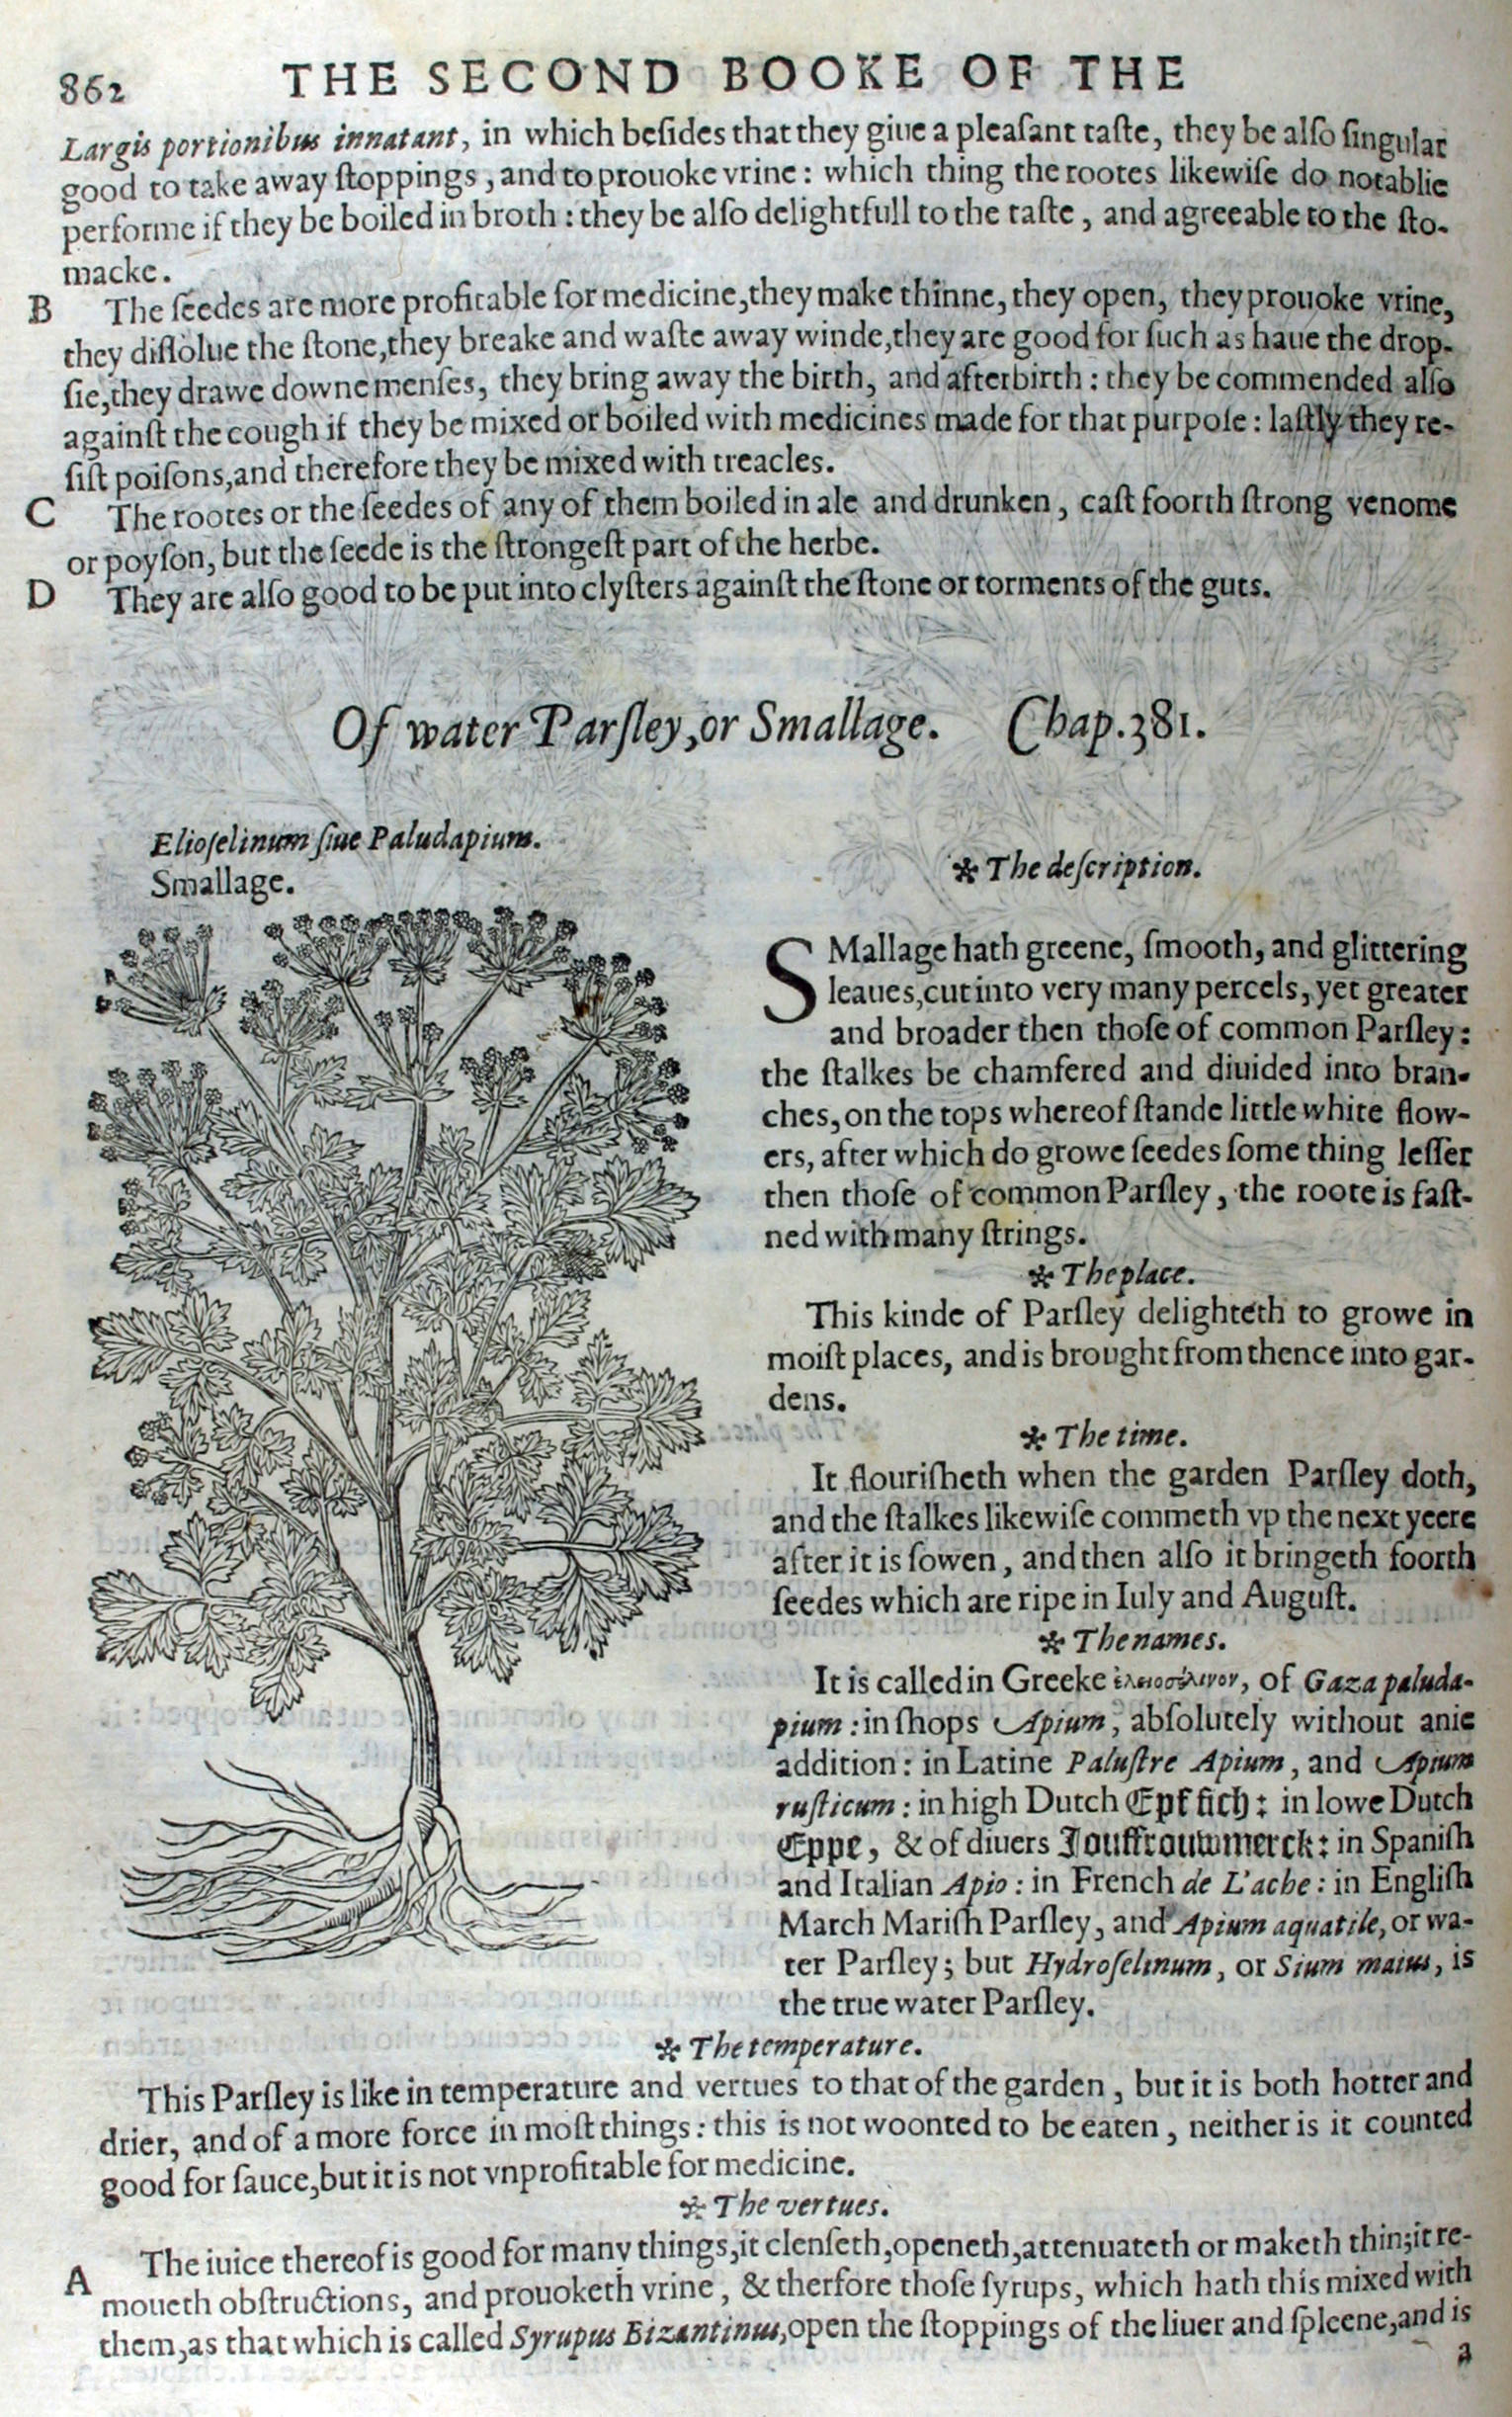 862 THE SECOND BOOKE OF THE
Largis portionibus innatant, in which beſides that they giue a pleaſant taſte, they be alſo ſingular
good to take away ſtoppings, and to prouoke vrine: which thing the rootes likewiſe do notablie
performe if they be boiled in broth: they be alſo delightfull to the taſte, and agreeable to the ſto-
macke.
B The ſeedes are more profitable for medicine, they make thinne, they open, they prouoke vrine,
they diſſolue the ſtone, they breake and waſte away winde, they are good for ſuch as haue the drop-
ſie, they drawe downe menſes, they bring away the birth, and afterbirth: they be commended alſo
againſt the cough if they be mixed or boiled with medicines made for that purpoſe: laſtly they re-
ſiſt poiſons, and therefore they be mixed with treacles.
C The rootes or the ſeedes of any of them boiled in ale and drunken, caſt foorth ſtrong venome
or poyſon, but the ſeede is the ſtrongeſt part of the herbe.
D They are alſo good to be put into clyſters againſt the ſtone or torments of the guts.
Of water Parſley, or Smallage. Chap. 381.
Elioſelinum ſiue Paludapium.
Smallage.
✻ The deſcription.
SMallage hath greene, ſmooth, and glittering
leaues, cut into very many percels, yet greater
and broader then thoſe of common Parſley:
the ſtalkes be chamfered and diuided into bran-
ches, on the tops whereof ſtande little white flow-
ers, after which do growe ſeedes ſome thing leſſer
then thoſe of common Parſley, the roote is faſt-
ned with many ſtrings.
✻ The place.
This kinde of Parſley delighteth to growe in
moiſt places, and is brought from thence into gar-
dens.
✻ The time.
It flouriſheth when the garden Parſley doth,
and the ſtalkes likewiſe commeth vp the next yeere
after it is ſowen, and then alſo it bringeth foorth
ſeedes which are ripe in Iuly and Auguſt.
✻ The names.
It is called in Greeke ἑλειοσέλινον, of Gaza paluda-
pium: in ſhops Apium, abſolutely without anie
addition: in Latine Paluſtre Apium, and Apium
ruſticum: in high Dutch Epffich: in lowe Dutch
Eppe, & of diuers Jouffrouwmerck: in Spaniſh
and Italian Apio: in French de L'ache: in Engliſh
March Mariſh Parſley, and Apium aquatile, or wa-
ter Parſley; but Hydroſelinum, or Sium maius, is
the true water Parſley.
✻ The temperature.
This Parſley is like in temperature and vertues to that of the garden, but it is both hotter and
drier, and of a more force in moſt things: this is not woonted to be eaten, neither is it counted
good for ſauce, but it is not vnprofitable for medicine.
✻ The vertues.
A The iuice thereof is good for many things, it clenſeth, openeth, attenuateth or maketh thin; it re-
moueth obſtructions, and prouoketh vrine, & therfore thoſe ſyrups, which hath this mixed with
them, as that which is called Syrupus Bizantinus, open the ſtoppings of the liuer and ſpleene, and is
a